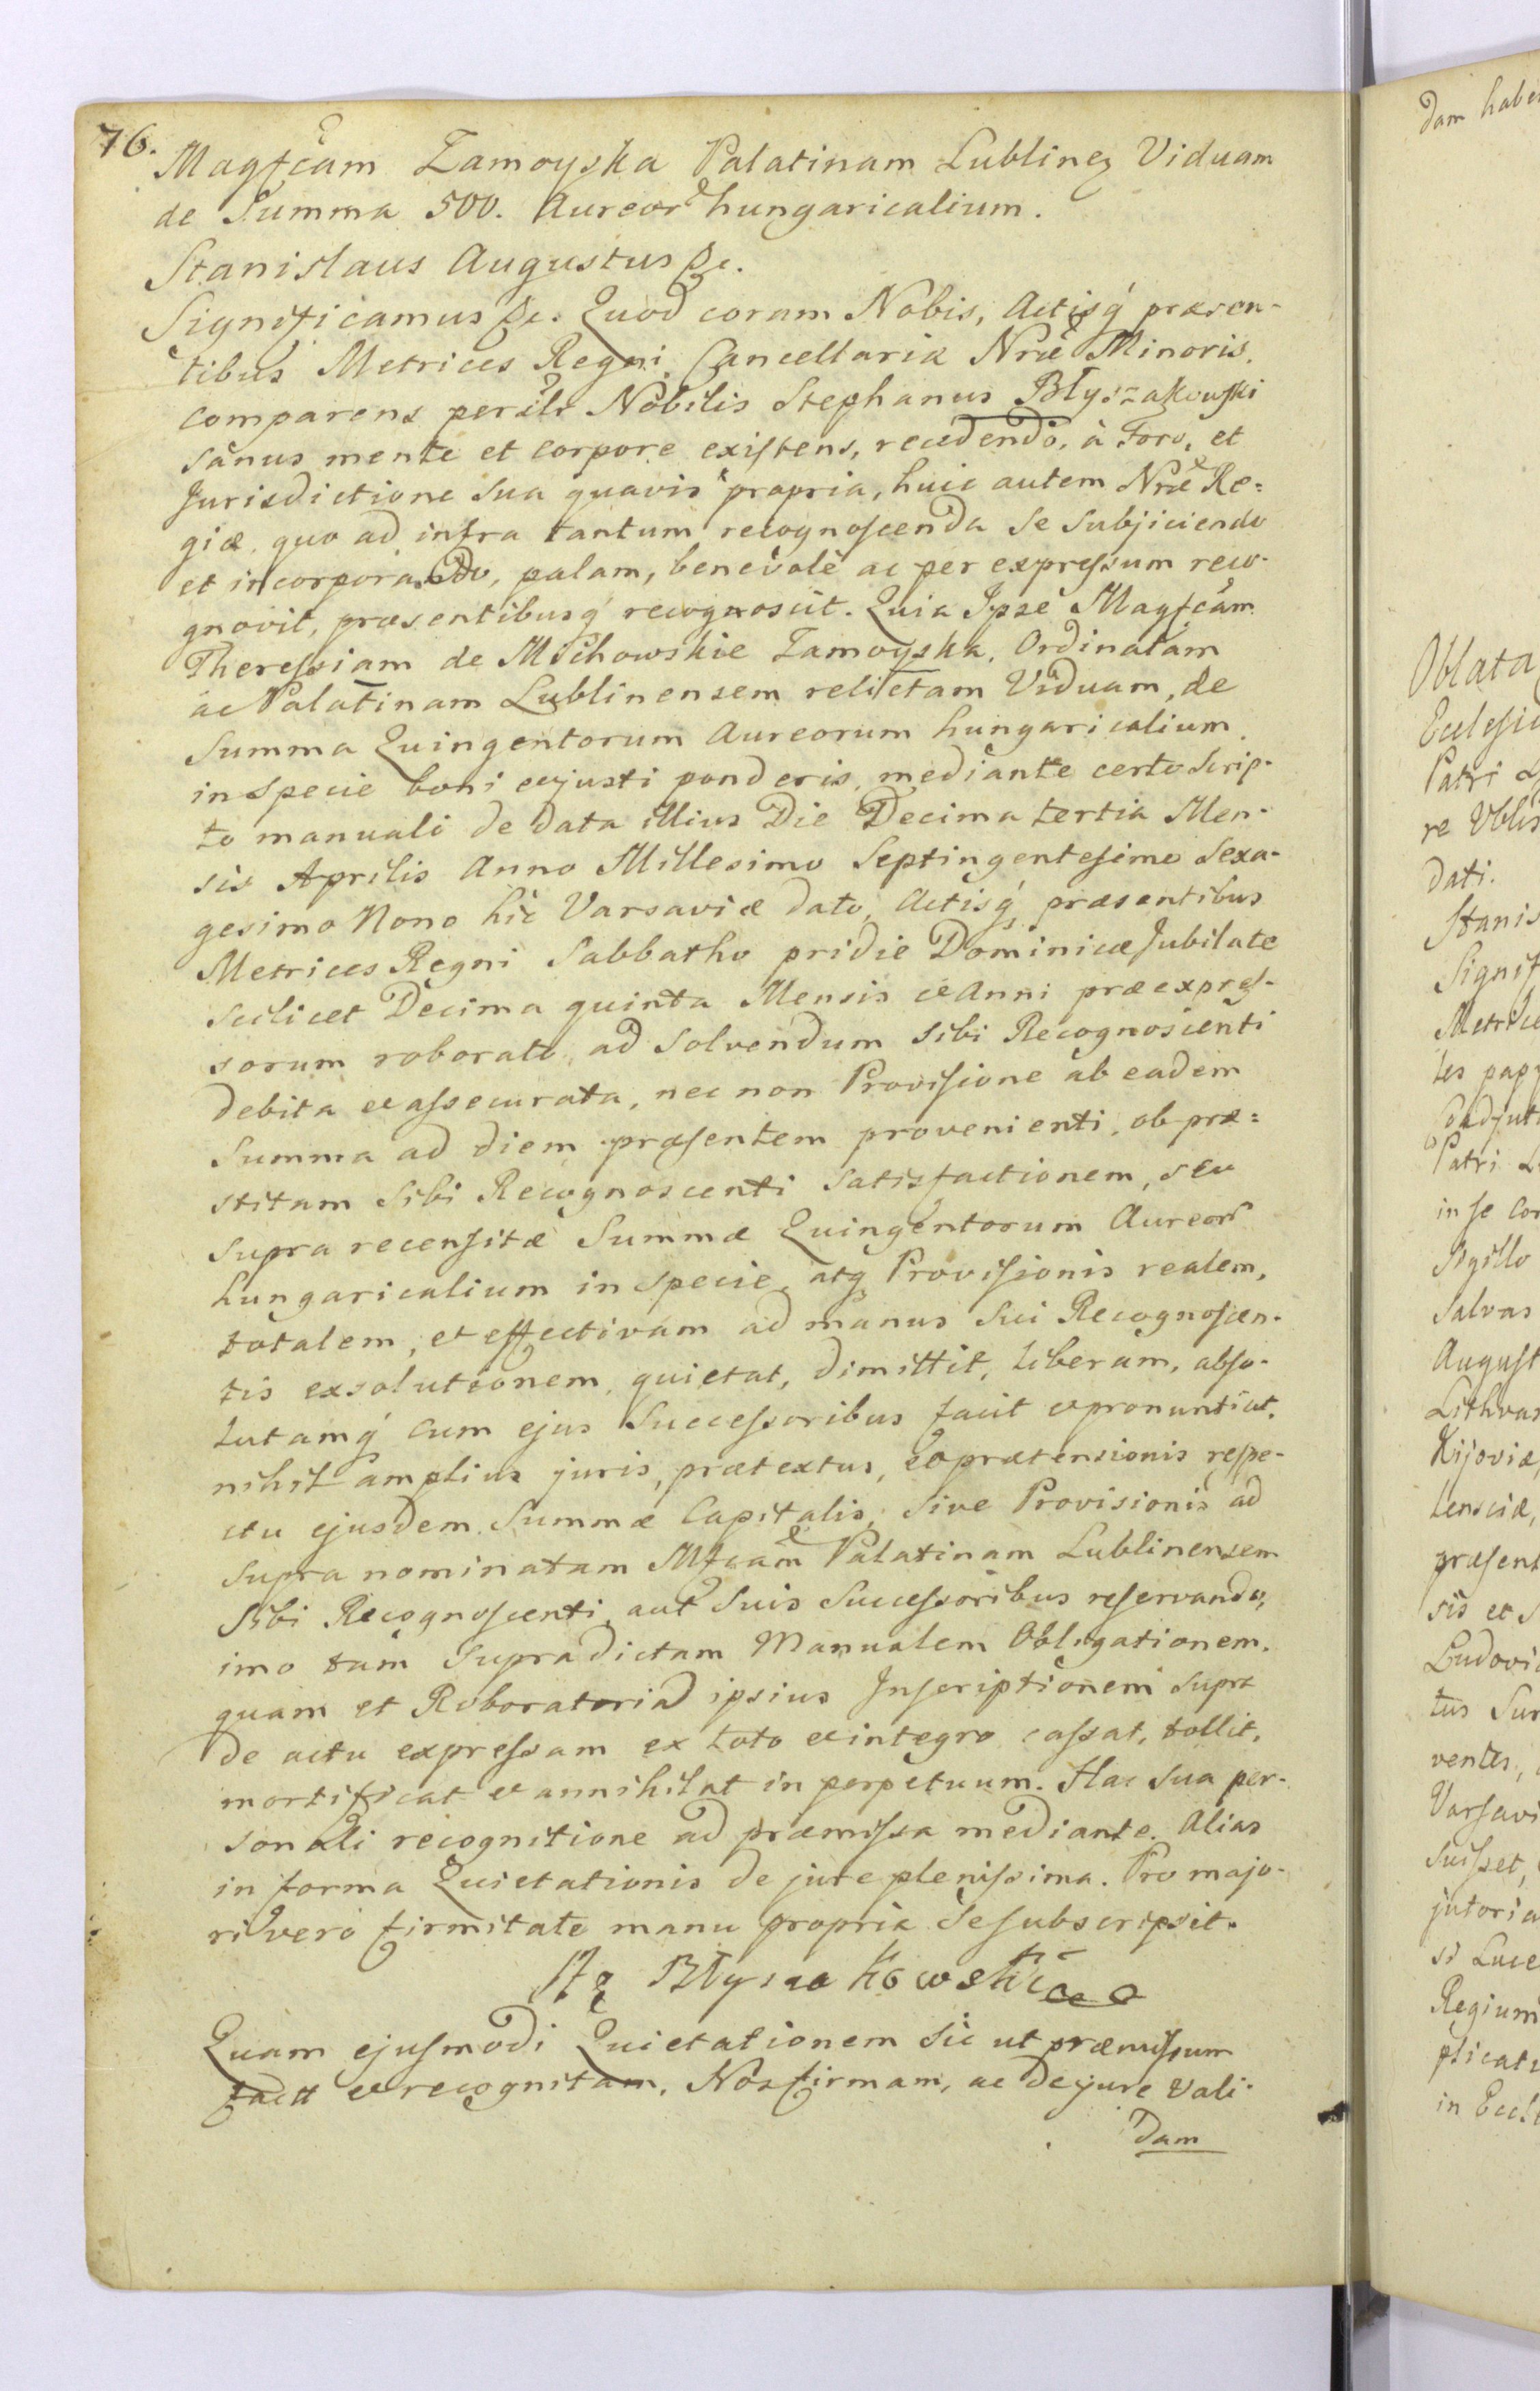 76.
Magfcam Zamoyska Palatinam Lublinen Viduam
de Summa 500. Aureor hungaricalium.
Stanislaus Augustus &c.
Significamus &c. Quod coram Nobis, Actisq́ præsen-
tibus Metrices Regni, Cancellariæ Nræ Minoris,
comparens persltr Nobilis Stephanus Błyszakowski
sanus mente et corpore existens, recedendo, à Foro, et
Jurisdictione sua quavis propria, huic autem Nræ Re=
giæ, quo ad infra tantum recognoscenda se subjiciendo
et incorporando, palam, benevolè ac per expressum reco-
gnovit, præsentibusq́ recognoscit. Quia Ipse Magfcam
Theressiam de Michowskie Zamoyska, Ordinatam
ac Palatinam Lublinensem relictam Viduam, de
Summa Quingentorum Aureorum hungaricalium,
in specie boni et justi ponderis, mediante certo Scrip-
to manuali de data illius Die Decima tertia Men-
sis Aprilis Anno Millesimo Septingentesimo Sexa-
gesimo Nono hic Varsaviæ dato, Actisq́ præsentibus
Metrices Regni Sabbatho pridie Dominicæ Jubilate
scilicet Decima quinta Mensis et Anni præexpres-
sorum roborato, ad solvendum sibi Recognoscenti
debita et assecurata, nec non Provisione ab eadem
Summa ad diem præsentem provenienti, ob præ=
stitam sibi Recognoscenti satisfactionem, seu
supra recensitæ Summæ Quingentorum Aureor
hungaricalium in specie, atq Provisionis realem,
totalem, et effectivam ad manus sui Recognoscen-
tis exsolutionem, quietat, dimittit, liberam, abso-
lutamq́ cum ejus Successoribus facit et pronuntiat,
nihil amplius juris, prætextus, et prætensionis respe-
ctu ejusdem Summæ Capitalis, sive Provisionis ad
supra nominatam Mfcam Palatinam Lublinensem
sibi Recognoscenti, aut suis Successoribus reservando,
imo tam supradictam Manualem Obligationem,
quam et Roboratoriad ipsius Inscriptionem supra
de actu expressam ex toto et integro cassat, tollit,
mortificat et annihilat in perpetuum. Hac sua per-
sonali recognitione ad præmissa mediante. Alias
in forma Quietationis de jure plenissima. Pro majo-
ri vero firmitate manu propria se subscripsit.
Błyszakowski
Quam ejusmodi Quietationem sic ut præmissum
facta et recognitam, Nos firmam, ac de jure vali-
dam
dam habe
Oblata
Ecclesia
Patri
re Vblis
dati.
Stanis
Signif
Metrice
tes papy
Patri L
in se Con
Sigillo
Salvas
August
Lithvan
Kijoviæ,
lensciæ,
præsent
sis et S
Ludovic
tus Sur
ventes,
Varsavi
suisset,
jutoria
si Luce
Regium
plicat
in Eccl